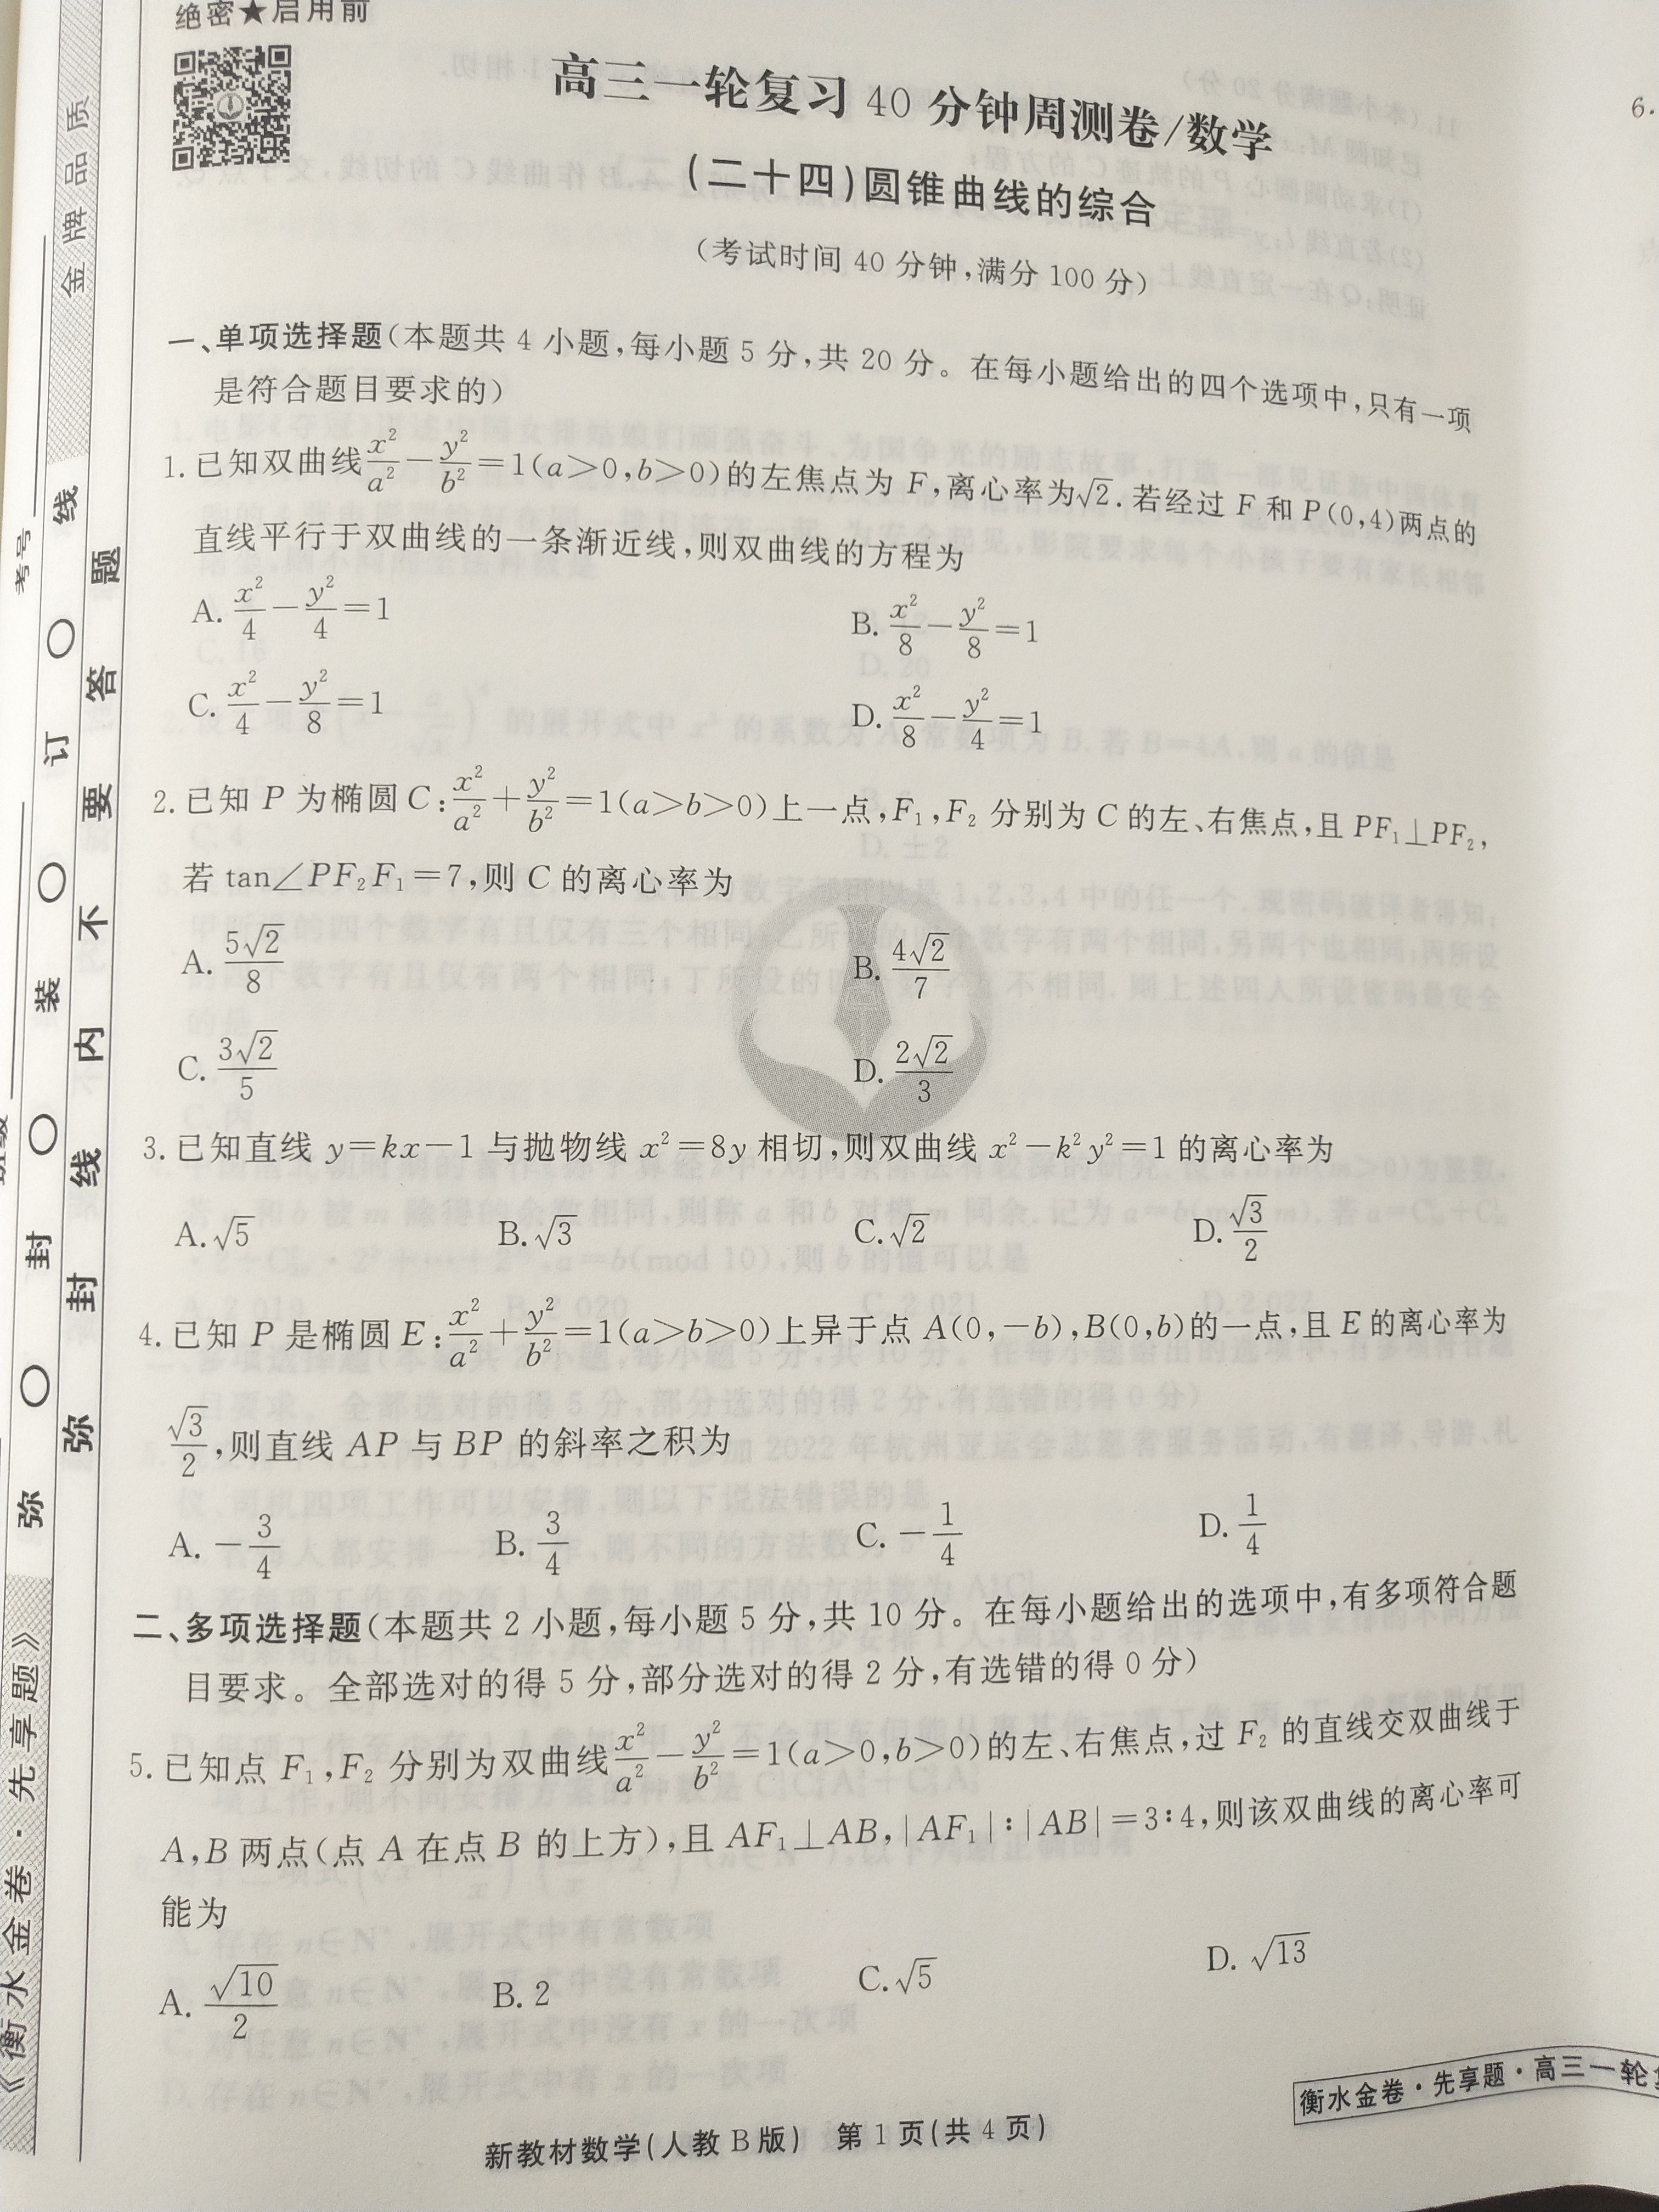 绝密★启用前
高三一轮复习 40 分钟周测卷/数学
(二十四)圆锥曲线的综合
(考试时间 40 分钟,满分 100 分)
一、单项选择题(本题共 4 小题,每小题 5 分,共 20 分。在每小题给出的四个选项中,只有一项
是符合题目要求的)
1. 已知双曲线 x²/a² − y²/b² = 1(a>0,b>0)的左焦点为 F,离心率为√2. 若经过 F 和 P(0,4)两点的
直线平行于双曲线的一条渐近线,则双曲线的方程为
A. x²/4 − y²/4 = 1 B. x²/8 − y²/8 = 1
C. x²/4 − y²/8 = 1 D. x²/8 − y²/4 = 1
2. 已知 P 为椭圆 C: x²/a² + y²/b² = 1(a>b>0)上一点,F₁,F₂ 分别为 C 的左、右焦点,且 PF₁⊥PF₂,
若 tan∠PF₂F₁=7,则 C 的离心率为
A. 5√2/8 B. 4√2/7
C. 3√2/5 D. 2√2/3
3. 已知直线 y=kx−1 与抛物线 x²=8y 相切,则双曲线 x²−k²y²=1 的离心率为
A. √5 B. √3 C. √2 D. √3/2
4. 已知 P 是椭圆 E: x²/a² + y²/b² = 1(a>b>0)上异于点 A(0,−b),B(0,b)的一点,且 E 的离心率为
√3/2,则直线 AP 与 BP 的斜率之积为
A. −3/4 B. 3/4 C. −1/4 D. 1/4
二、多项选择题(本题共 2 小题,每小题 5 分,共 10 分。在每小题给出的选项中,有多项符合题
目要求。全部选对的得 5 分,部分选对的得 2 分,有选错的得 0 分)
5. 已知点 F₁,F₂ 分别为双曲线 x²/a² − y²/b² = 1(a>0,b>0)的左、右焦点,过 F₂ 的直线交双曲线于
A,B 两点(点 A 在点 B 的上方),且 AF₁⊥AB,|AF₁|∶|AB|=3∶4,则该双曲线的离心率可
能为
A. √10/2 B. 2 C. √5 D. √13
新教材数学(人教 B 版) 第 1 页(共 4 页)
衡水金卷·先享题·高三一轮
6.
金牌品质
弥 封 装 订 线
弥封线内不要答题
考号
《衡水金卷·先享题》